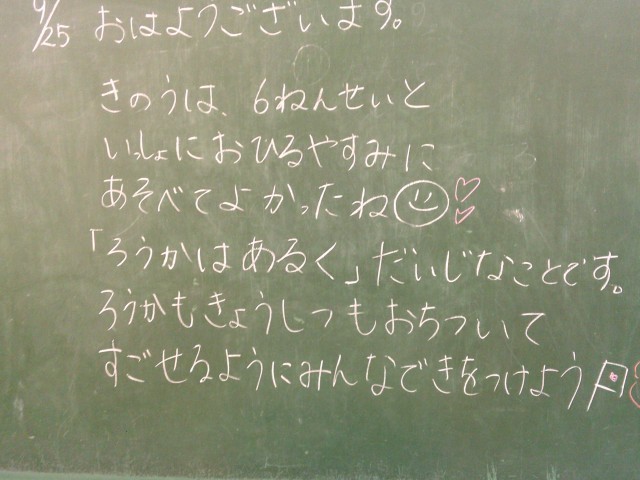 9/25 おはようございます。
きのうは、6ねんせいと
いっしょにおひるやすみに
あそべてよかったね
「ろうかはあるく」だいじなことです。
ろうかもきょうしつもおちついて
すごせるようにみんなできをつけよう